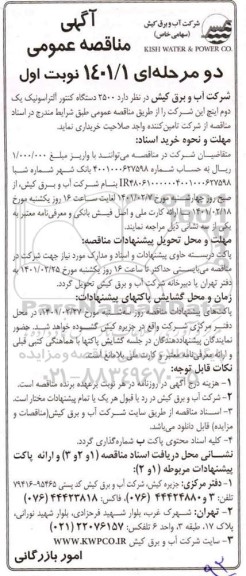 شرکت آب و برق کیش
(سهامی خاص)
KISH WATER & POWER CO.
آگهی
مناقصه عمومی
دو مرحله‌ای ۱۴۰۱/۱ نوبت اول
شرکت آب و برق کیش در نظر دارد ۲۵۰۰ دستگاه کنتور آلتراسونیک یک
دوم اینچ این شرکت را از طریق مناقصه عمومی طبق شرایط مندرج در اسناد
مناقصه از شرکت تامین‌کننده واجد صلاحیت خریداری نماید.
مهلت و نحوه خرید اسناد:
متقاضیان شرکت در مناقصه می‌توانند با واریز مبلغ ۱/۰۰۰/۰۰۰
ریال به حساب شماره ۴۰۰۱۰۰۰۶۲۷۵۹۸ بانک شهر شماره شبا
بنام شرکت آب و برق کیش، از
صبح روز چهارشنبه مورخ ۱۴۰۱/۰۲/۰۷ لغایت ساعت ۱۶ روز یکشنبه مورخ
۱۴۰۱/۰۲/۱۸ با ارائه کارت ملی و اصل فیش بانکی و معرفی‌نامه معتبر به
نشانی ذیل مراجعه نمایند.
مهلت و محل تحویل پیشنهادات مناقصه:
پاکت دربسته حاوی پیشنهادات و اسناد و مدارک مورد نیاز جهت شرکت در
مناقصه می‌بایستی حداکثر تا ساعت ۱۶ روز یکشنبه مورخ ۱۴۰۱/۰۲/۲۵ به
دفتر تهران یا دبیرخانه شرکت آب و برق کیش تحویل گردد.
زمان و محل گشایش پاکتهای پیشنهادات:
پاکتهای پیشنهادات مناقصه روز سه‌شنبه مورخ ۱۴۰۱/۰۲/۲۷ در محل
دفتر مرکزی شرکت واقع در جزیره کیش گشوده خواهد شد. حضور
نمایندگان پیشنهاددهندگان در جلسه گشایش پاکتها با هماهنگی کتبی قبلی
و ارائه معرفی‌نامه معتبر و کارت ملی بلامانع است.
نکات قابل توجه:
۱- هزینه دو آگهی در روزنامه در هر نوبت برعهده برنده مناقصه است.
۲- شرکت آب و برق کیش در رد یا قبول هر یک یا تمام پیشنهادات مختار است.
۳- اسناد مناقصه از طریق سایت شرکت آب و برق کیش(مناقصات و
مزایده) قابل دانلود می‌باشد.
۴- کلیه اسناد محتوی پاکت ب شماره‌گذاری گردد.
نشانی محل دریافت اسناد مناقصه (۱ و ۲ و ۳) و ارائه پاکت
پیشنهادات مربوطه (۱ و ۲):
۱- دفتر مرکزی: جزیره کیش، شرکت آب و برق کیش کد پستی ۹۵۴۶۵-۷۹۴۱۶
تلفن: ۳ و ۴۴۴۲۴۸۸۰ (۰۷۶)، فاکس: ۴۴۴۲۳۸۱۸ (۰۷۶)
۲- تهران: شهرک غرب، بلوار شهید فرحزادی، بلوار شهید نورانی،
پلاک ۱۷، طبقه ۳، واحد ۶ تلفکس: ۲۲۰۷۶۱۵۷ (۰۲۱)
۳- سایت شرکت آب و برق کیش WWW.KWPCO.IR
امور بازرگانی
۰۲۱-۸۸۳۴۹۶۷۰